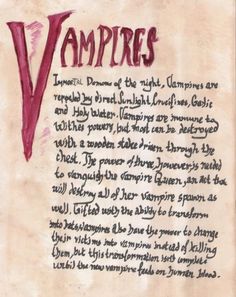 VAMPIRES
Immortal Demons of the night, Vampires are
repelled by direct Sunlight, Crucifixes, Garlic
and Holy Water. Vampires are immune to
Witches powers, but most can be destroyed
with a wooden stake driven through the
chest. The power of three, however is needed
to vanquish the vampire Queen, an act that
will destroy all of her vampire spawn as
well. Gifted with the ability to transform
into bats, vampires also have the power to change
their victims into vampires instead of killing
them, but this transformation isn't complete
until the new vampire feeds on human blood.